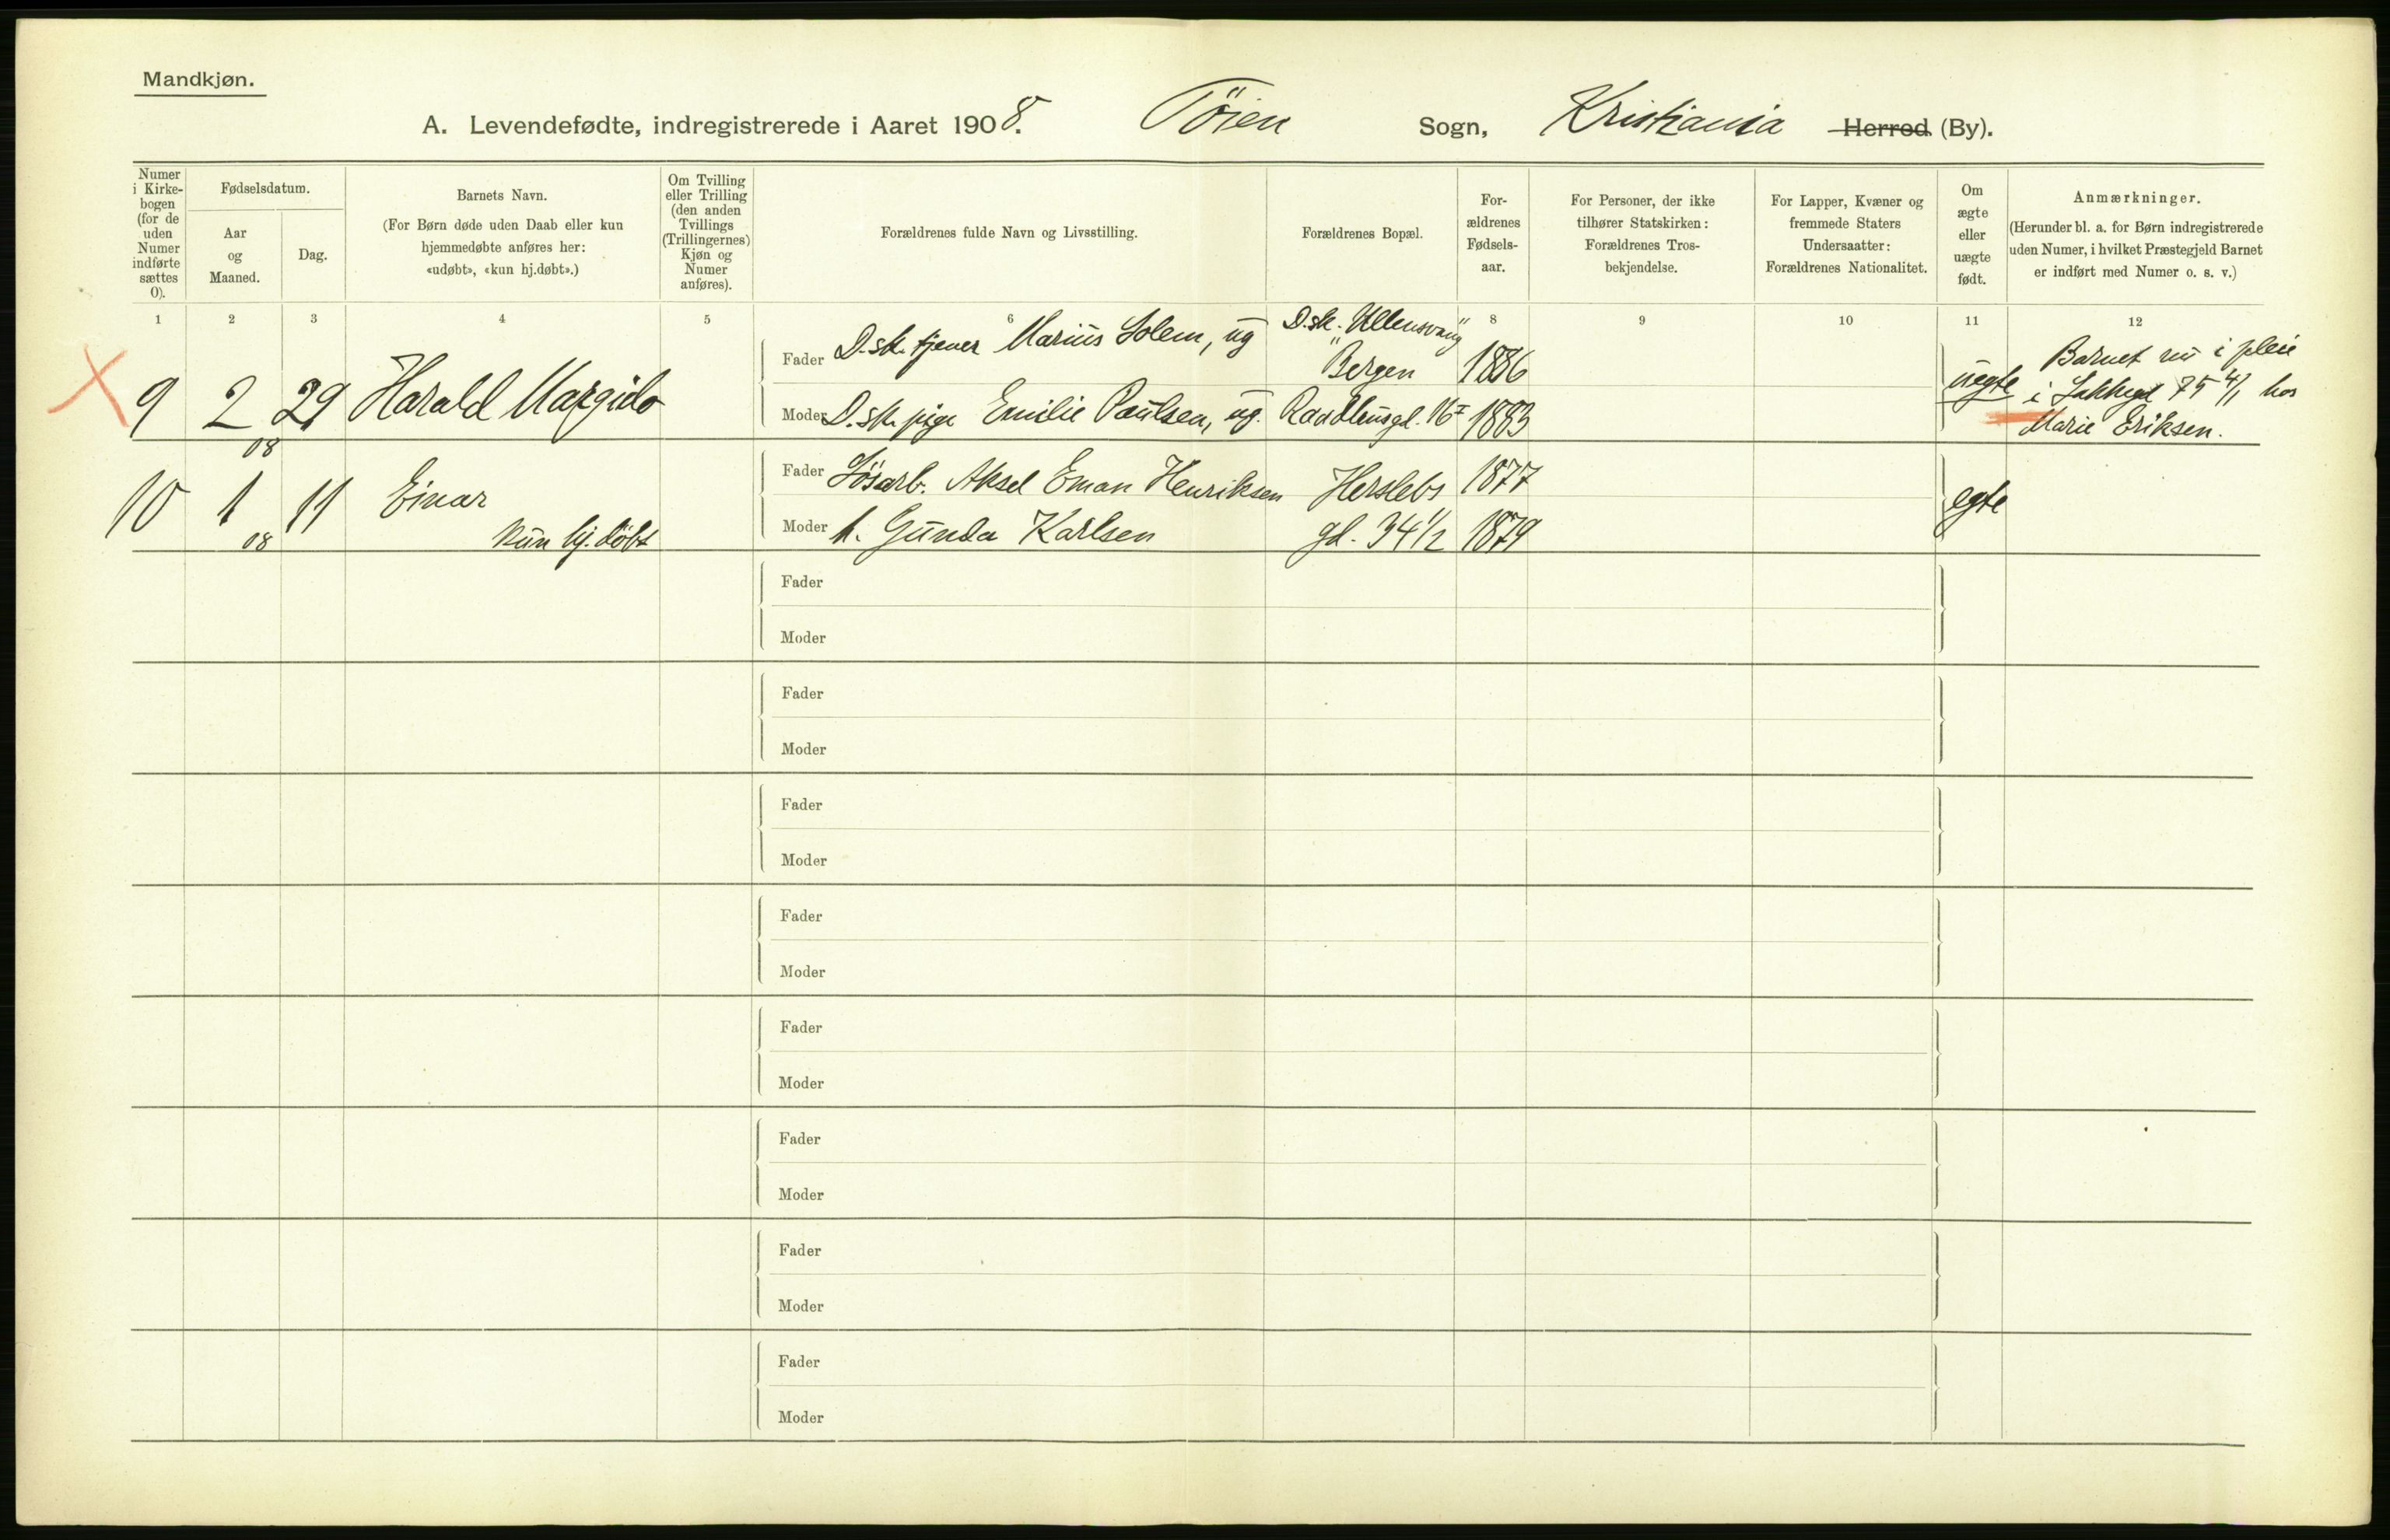 Mandkjøn.
A. Levendefødte, indregistrerede i Aaret 1908. Töien Sogn, Kristiania Herred (By).
Numer i Kirke-bogen (for de uden Numer indførte sættes 0).
Fødselsdatum.
Aar og Maaned.
Dag.
Barnets Navn.
(For Børn døde uden Daab eller kun
hjemmedøbte anføres her:
«udøbt», «kun hj.døbt».)
Om Tvilling
eller Trilling
(den anden
Tvillings
(Trillingernes)
Kjøn og
Numer
anføres).
Forældrenes fulde Navn og Livsstilling.
Forældrenes Bopæl.
For-
ældrenes
Fødsels-
aar.
For Personer, der ikke
tilhører Statskirken:
Forældrenes Tros-
bekjendelse.
For Lapper, Kvæner og
fremmede Staters
Undersaatter:
Forældrenes Nationalitet.
Om
ægte
eller
uægte
født.
Anmærkninger.
(Herunder bl. a. for Børn indregistrerede
uden Numer, i hvilket Præstegjeld Barnet
er indført med Numer o. s. v.)
1 2 3 4 5 6 8 9 10 11 12
9 2 08 29 Harald Margido
Fader D.sk. tjener Marius Solem, ug D.sk. "Ullensvang" Bergen 1886
Moder D.sk. pige Emilie Paulsen, ug. Raadhusgd. 16 I 1883
uegte
Barnet nu i pleie
i Lakkegd 75 4/1 hos
Marie Eriksen.
10 1 08 11 Einar
kun hj. döbt
Fader Lösarb. Aksel Eman Henriksen Herslebs 1877
Moder h. Gunda Karlsen gd. 34 1/2 1879
egte
Fader
Moder
Fader
Moder
Fader
Moder
Fader
Moder
Fader
Moder
Fader
Moder
Fader
Moder
Fader
Moder